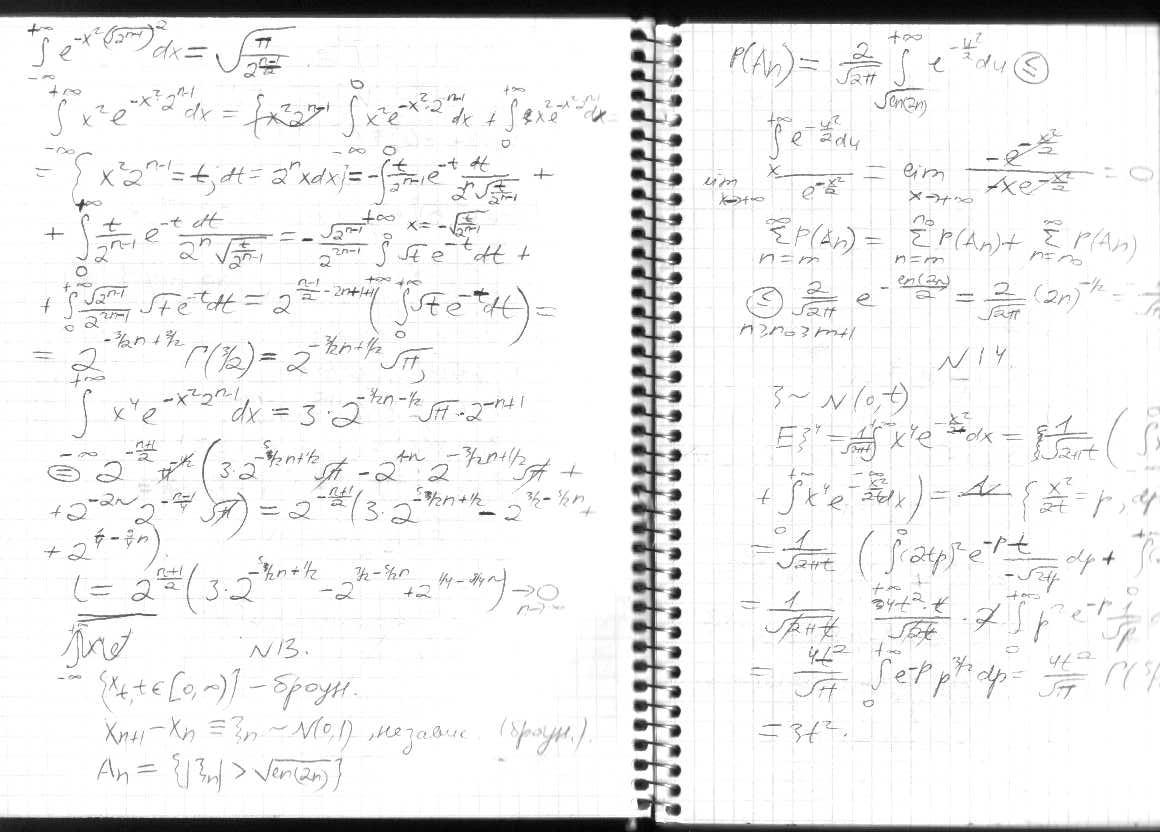 ∫_{-∞}^{+∞} e^{-x²(√2^{n-1})²} dx = √(π/2^{(n-1)/2})
∫_{-∞}^{+∞} x² e^{-x²·2^{n-1}} dx = { x²2^{n-1} ∫_{-∞}^{0} x² e^{-x²·2^{n-1}} dx + ∫_{0}^{+∞} x e^{-x²·2^{n-1}} dx
= { x²2^{n-1} = t; dt = 2^n x dx } = -∫_{0} t/2^{n-1} e^{-t} dt/(2^n √(t/2^{n-1})) +
x = -√(t/2^{n-1})
+ ∫_{0}^{+∞} t/2^{n-1} e^{-t} dt/(2^n √(t/2^{n-1})) = -√2^{n-1}/2^{2n-1} ∫_{0}^{+∞} √t e^{-t} dt +
+ ∫_{0}^{+∞} √2^{n-1}/2^{2n-1} √t e^{-t} dt = 2^{(n-1)/2 - 2n+1+1} ( ∫_{0}^{+∞} √t e^{-t} dt ) =
= 2^{-3/2n+3/2} Γ(3/2) = 2^{-3/2n+1/2} √π,
∫_{-∞}^{+∞} x⁴ e^{-x²2^{n-1}} dx = 3·2^{-3/2n-1/2} √π · 2^{-n+1}
= 2^{-(n+1)/2} π^{-1/2} ( 3·2^{-5/2n+1/2} √π - 2^{-n} 2^{-3/2n+1/2} √π +
+ 2^{-2n} 2^{-(n-1)/4} √π ) = 2^{-(n+1)/2} ( 3·2^{-5/2n+1/2} - 2^{3/2-5/2n} +
+ 2^{1/4-9/4n} )
L = 2^{(n+1)/2} ( 3·2^{-5/2n+1/2} - 2^{3/2-5/2n} + 2^{1/4-9/4n} ) → 0 n→∞
N13.
{X_t, t ∈ [0, ∞)} – броун.
X_{n+1} - X_n ≡ ξ_n ~ N(0,1), независ. (броун.).
A_n = {|ξ_n| > √ln(2n)}
P(A_n) = 2/√2π ∫_{√ln(2n)}^{+∞} e^{-u²/2} du ≤
lim_{x→+∞} ∫_{x}^{+∞} e^{-u²/2} du / e^{-x²/2} = lim_{x→+∞} -e^{-x²/2} / -xe^{-x²/2} = 0
∑_{n=m}^{∞} P(A_n) = ∑_{n=m}^{n₀} P(A_n) + ∑_{n=n₀}^{∞} P(A_n)
≤ 2/√2π e^{-ln(2n)/2} = 2/√2π (2n)^{-1/2} =
n≥n₀≥m+1
N14.
ξ ~ N(0,t)
Eξ⁴ = 1/√2πt ∫_{-∞}^{+∞} x⁴ e^{-x²/2t} dx = { 1/√2πt (
+ ∫_{0}^{+∞} x⁴ e^{-x²/2t} dx ) = { x²/2t = p, dp
= 1/√2πt ( ∫^{0} (2tp)² e^{-p} t/-√2tp dp +
= 1/√2πt 4t²·t/√2t · 2 ∫_{0}^{+∞} p² e^{-p} 1/√p
= 4t²/√π ∫_{0}^{+∞} e^{-p} p^{3/2} dp = 4t²/√π Γ(
= 3t².